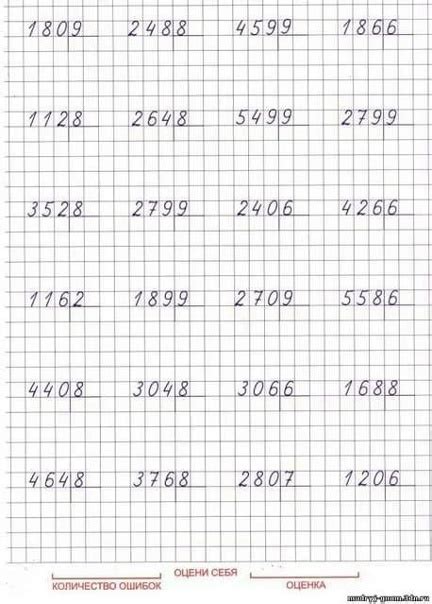 180 9 248 8 459 9 186 6
112 8 264 8 549 9 279 9
352 8 279 9 240 6 426 6
116 2 189 9 270 9 558 6
440 8 304 8 306 6 168 8
464 8 376 8 280 7 120 6
ОЦЕНИ СЕБЯ
КОЛИЧЕСТВО ОШИБОК ОЦЕНКА
mudryj-gnom.3dn.ru